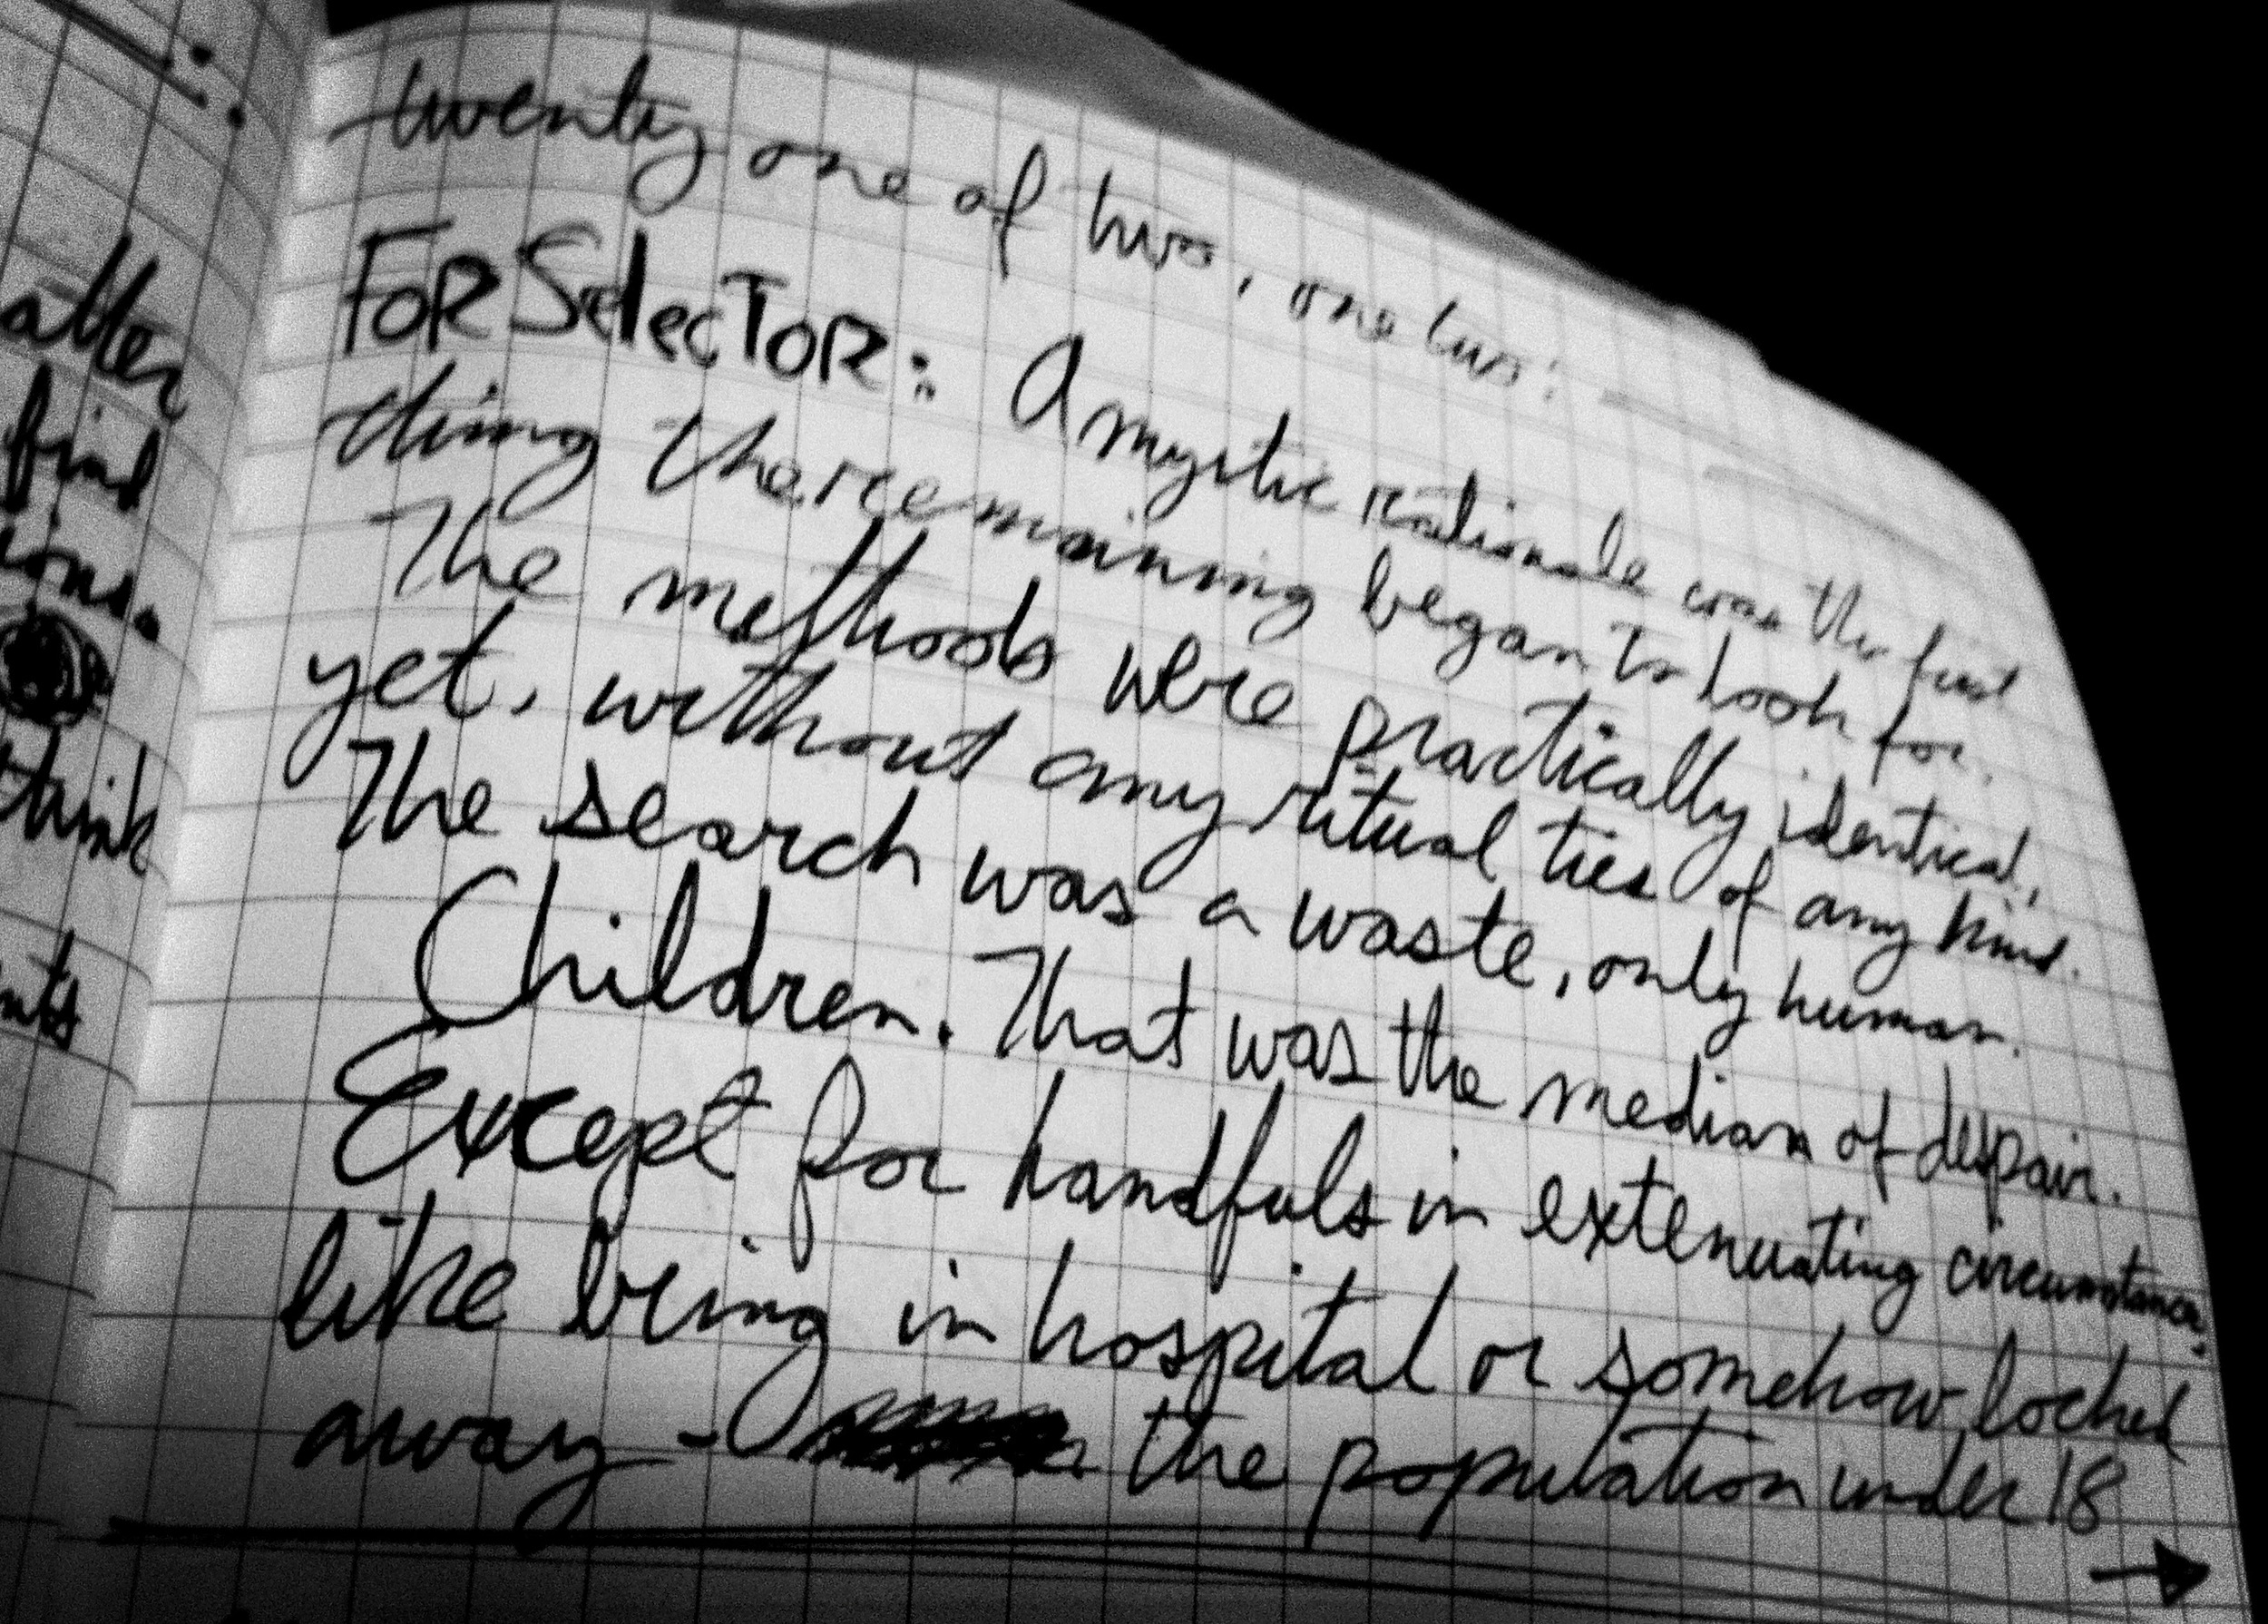 atter
find
ions.
think
nts
twenty one of two, one two:
FOR SelecToR: A mystic rationale was the first
thing the remaining began to look for.
The methods were practically identical,
yet, without any ritual ties of any kind.
The search was a waste, only human.
Children. That was the median of despair.
Except for handfuls in extenuating circumstances,
like being in hospital or somehow locked
away - the population under 18
→